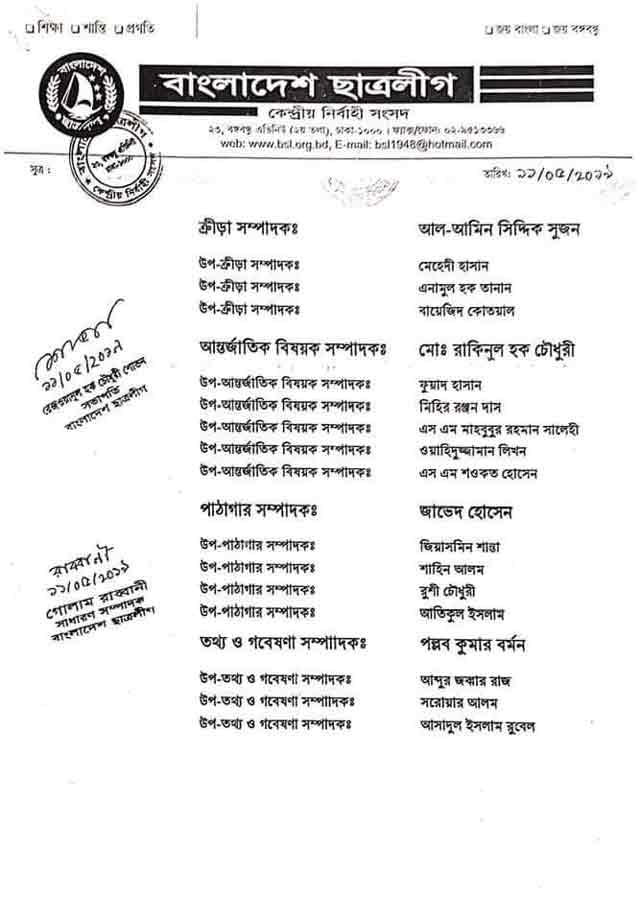 □ শিক্ষা □ শান্তি □ প্রগতি
□ জয় বাংলা □ জয় বঙ্গবন্ধু
বাংলাদেশ ছাত্রলীগ
কেন্দ্রীয় নির্বাহী সংসদ
২৩, বঙ্গবন্ধু এভিনিউ (২য় তলা), ঢাকা-১০০০। ফ্যাক্স/ফোন: ০২-৯৫১৩৩৬৬
web: www.bsl.org.bd, E-mail: bsl1948@hotmail.com
সূত্র :
তারিখ: ১১/০৫/২০১৯
ক্রীড়া সম্পাদকঃ আল-আমিন সিদ্দিক সুজন
উপ-ক্রীড়া সম্পাদকঃ মেহেদী হাসান
উপ-ক্রীড়া সম্পাদকঃ এনামুল হক তানান
উপ-ক্রীড়া সম্পাদকঃ বায়েজিদ কোতয়াল
আন্তর্জাতিক বিষয়ক সম্পাদকঃ মোঃ রাকিনুল হক চৌধুরী
উপ-আন্তর্জাতিক বিষয়ক সম্পাদকঃ ফুয়াদ হাসান
উপ-আন্তর্জাতিক বিষয়ক সম্পাদকঃ মিহির রঞ্জন দাস
উপ-আন্তর্জাতিক বিষয়ক সম্পাদকঃ এস এম মাহবুবুর রহমান সালেহী
উপ-আন্তর্জাতিক বিষয়ক সম্পাদকঃ ওয়াহিদুজ্জামান লিখন
উপ-আন্তর্জাতিক বিষয়ক সম্পাদকঃ এস এম শওকত হোসেন
১১/০৫/২০১৯
রেজওয়ানুল হক চৌধুরী শোভন
সভাপতি
বাংলাদেশ ছাত্রলীগ
পাঠাগার সম্পাদকঃ জাভেদ হোসেন
উপ-পাঠাগার সম্পাদকঃ জিয়াসমিন শান্তা
উপ-পাঠাগার সম্পাদকঃ শাহিন আলম
উপ-পাঠাগার সম্পাদকঃ রুশী চৌধুরী
উপ-পাঠাগার সম্পাদকঃ আতিকুল ইসলাম
রাব্বানী
১১/০৫/২০১৯
গোলাম রাব্বানী
সাধারণ সম্পাদক
বাংলাদেশ ছাত্রলীগ
তথ্য ও গবেষণা সম্পাাদকঃ পল্লব কুমার বর্মন
উপ-তথ্য ও গবেষণা সম্পাদকঃ আব্দুর জব্বার রাজ
উপ-তথ্য ও গবেষণা সম্পাাদকঃ সরোয়ার আলম
উপ-তথ্য ও গবেষণা সম্পাদকঃ আসাদুল ইসলাম রুবেল